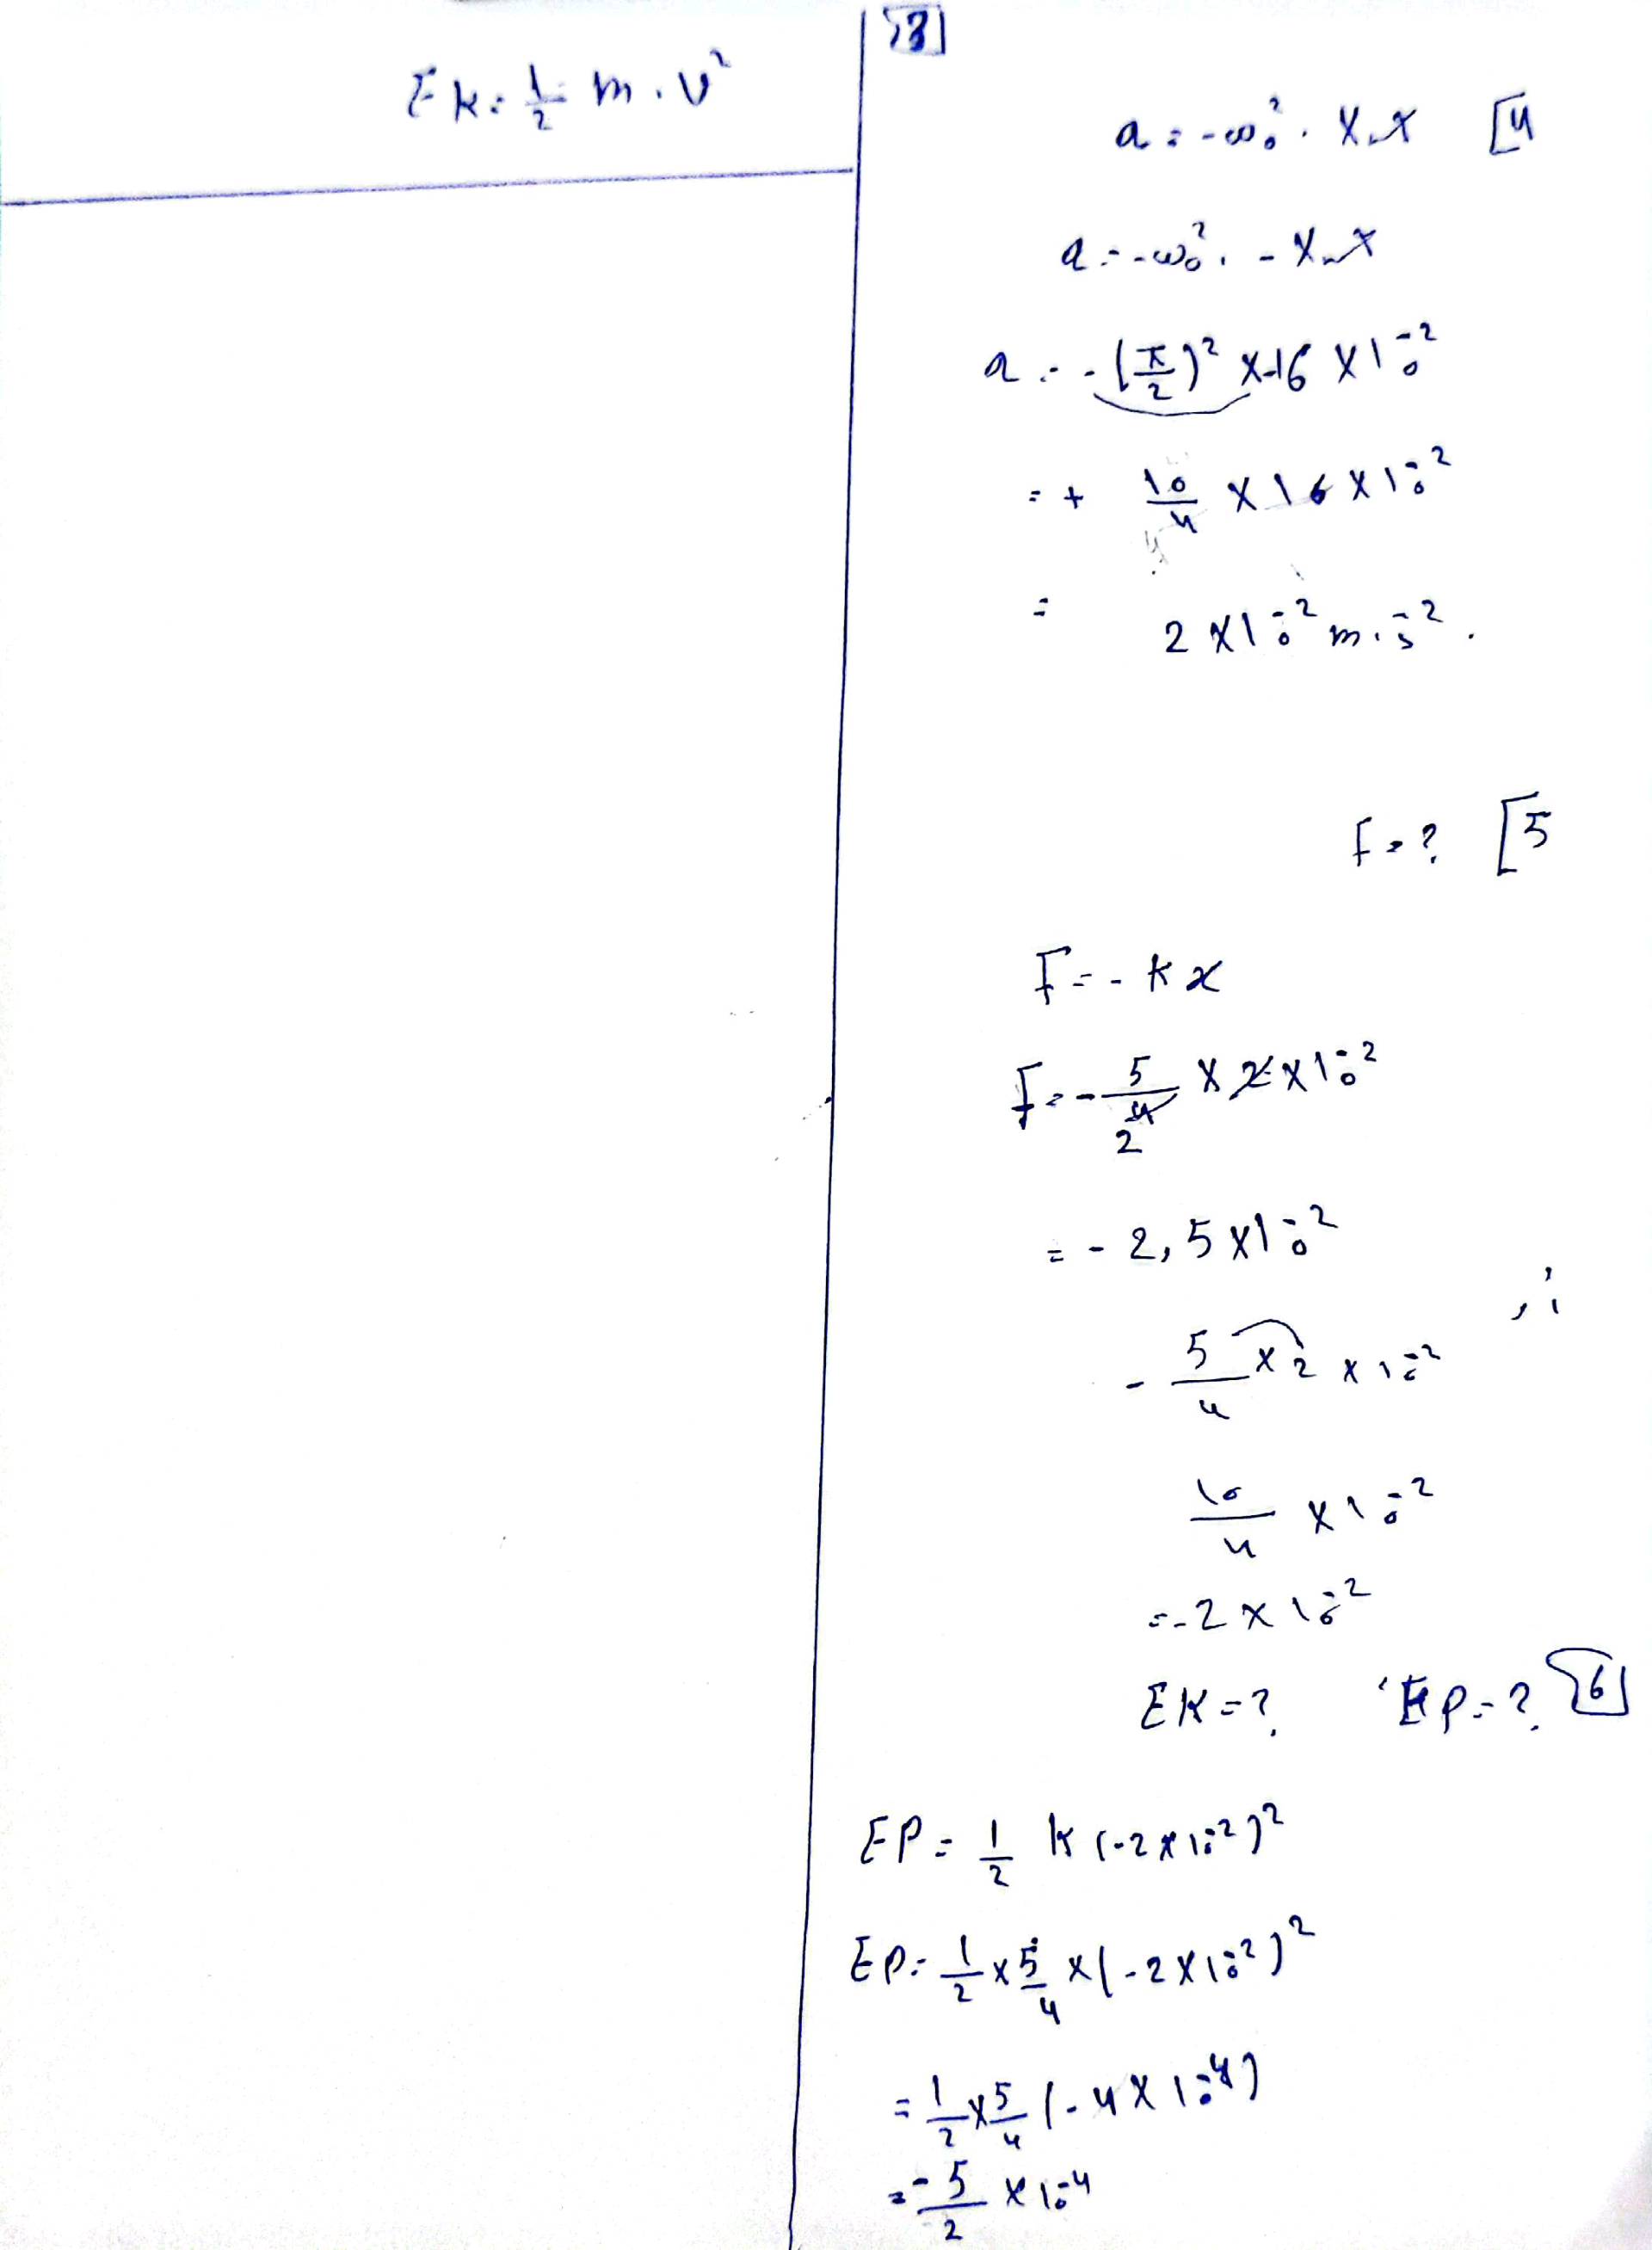 Ek = 1/2 m . v²
[3]
a = -ω₀² . Xmax [4
a = -ω₀² . -Xmax
a = -(π/2)² x-16 x10⁻²
= + 10/4 x 16 x10⁻²
= 2 x10⁻² m.s⁻².
F = ? [5
F = - kx
F = - 5/4 x 2 x10⁻²
2
= - 2,5 x10⁻²
- 5x2/4 x 10⁻²
10/4 x10⁻²
= -2 x 10⁻²
EK = ? EP = ? [6]
EP = 1/2 k (-2 x 10⁻²)²
EP = 1/2 x 5/4 x(-2 x10⁻²)²
= 1/2 x 5/4 (-4 x 10⁻⁴)
= -5/2 x 10⁻⁴